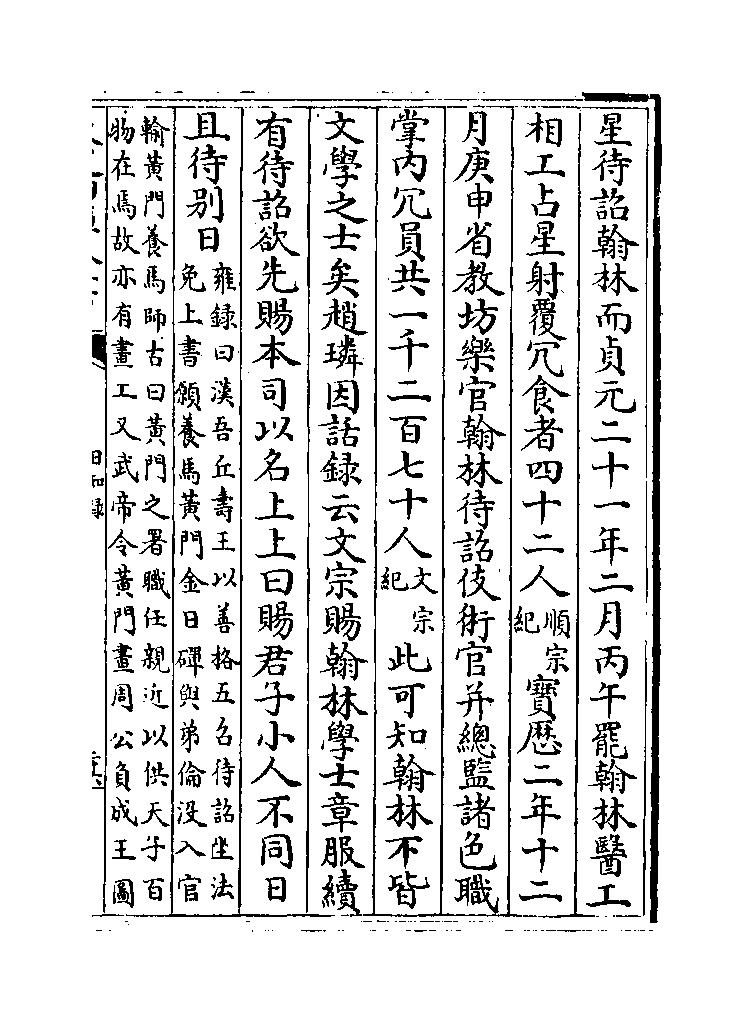 星待詔翰林而貞元二十一年二月丙午罷翰林醫工
相工占星射覆冗食者四十二人順宗紀寳厯二年十二
月庚申省教坊樂官翰林待詔伎術官并總監諸色職
掌内冗員共一千二百七十人文宗紀此可知翰林不皆
文學之士矣趙璘因話録云文宗賜翰林學士章服續
有待詔欲先賜本司以名上上曰賜君子小人不同日
且待别日雍録曰漢吾丘壽王以善格五召待詔坐法免上書願養馬黄門金日磾與弟倫没入官
輸黄門養馬師古曰黄門之署職任親近以供天子百物在焉故亦有畫工又武帝令黄門畫周公負成王圖
日知録